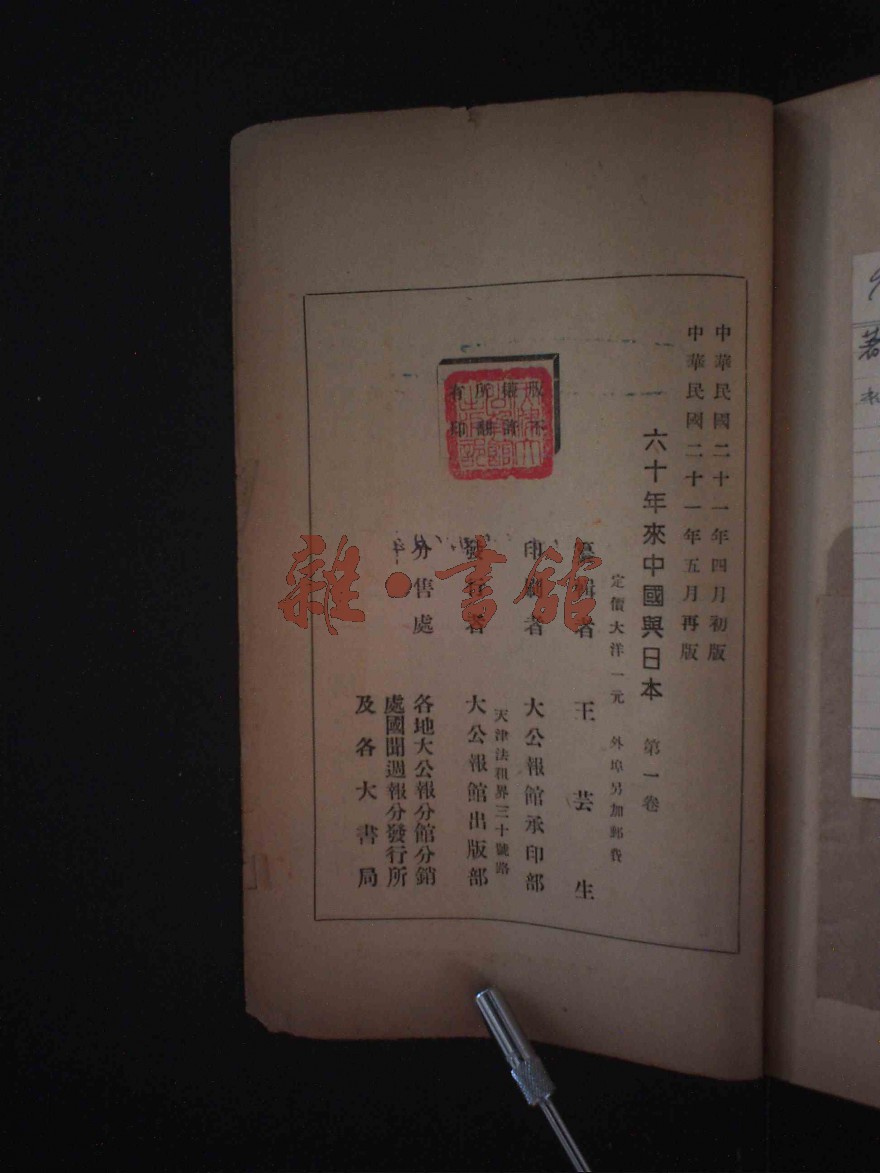 中華民國二十一年四月初版
中華民國二十一年五月再版
六十年來中國與日本 第一卷
定價大洋一元 外埠另加郵費
纂輯者 王芸生
印刷者 大公報館承印部
天津法租界三十號路
發行者 大公報館出版部
分售處 各地大公報分館分銷
處國聞週報分發行所
及各大書局
版權所有
不許翻印
雜·書館